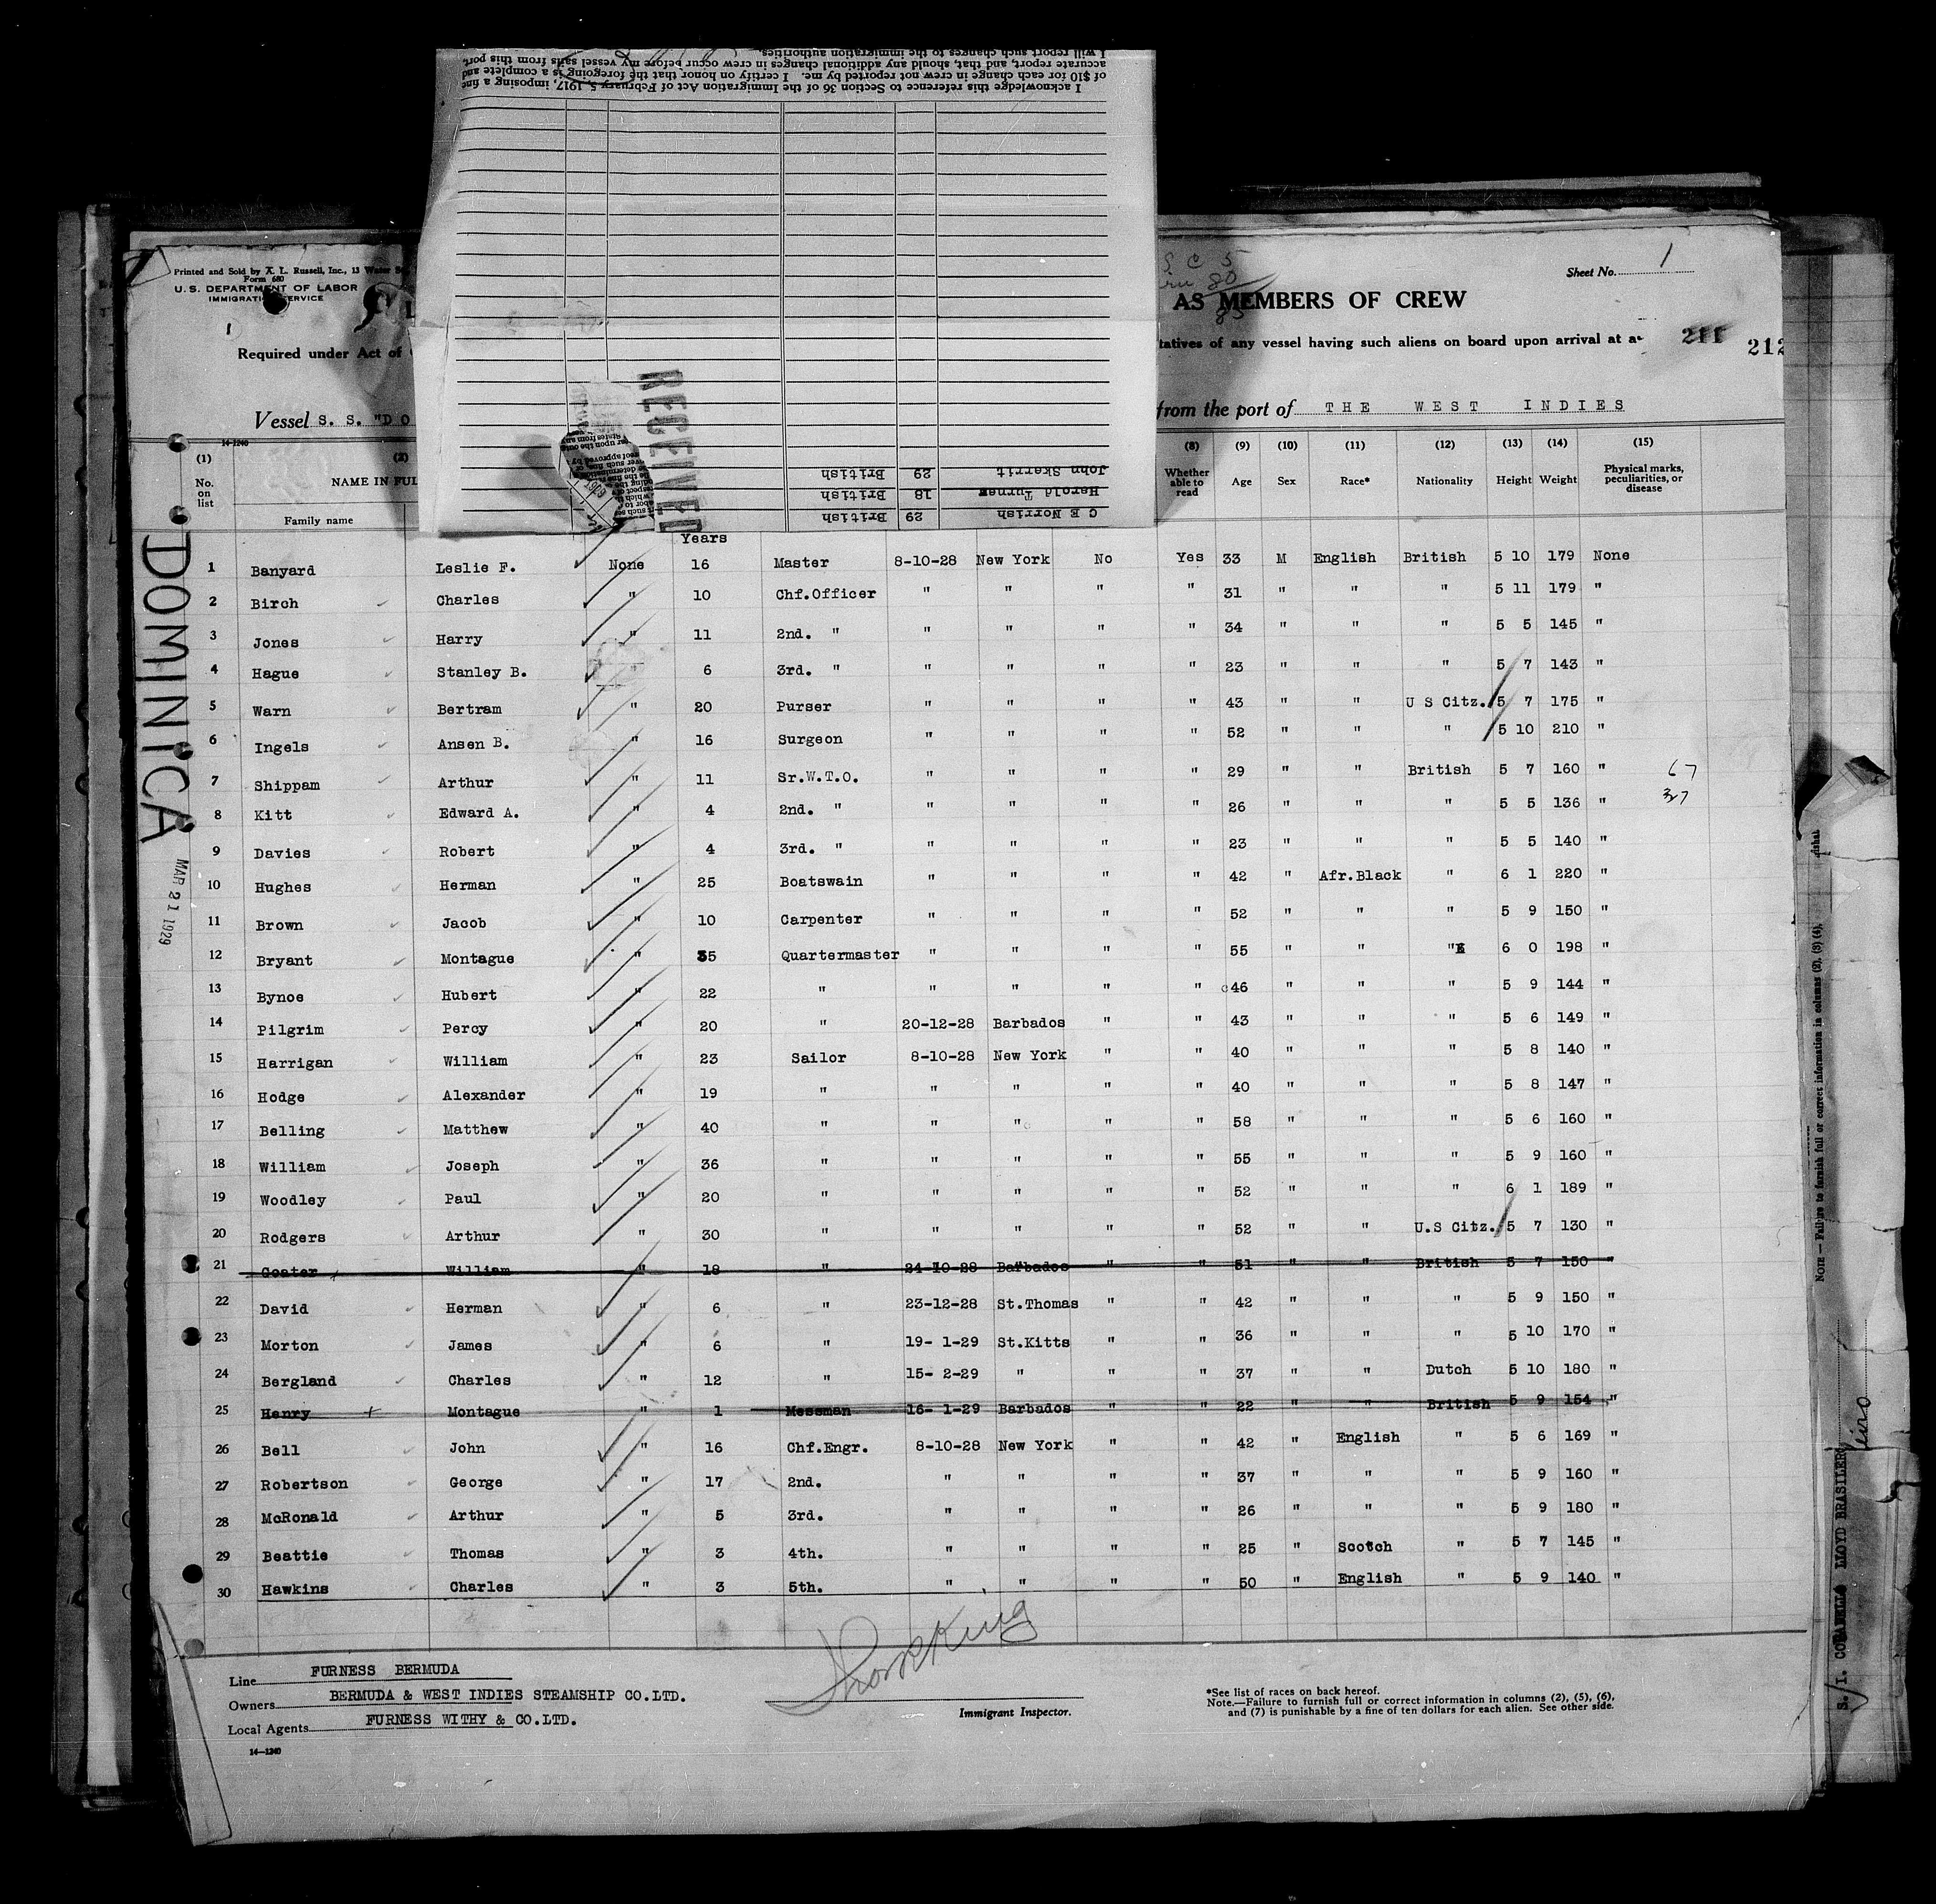 I acknowledge this reference to Section 36 of the Immigration Act of February 5, 1917, imposing a fine
of $10 for each change in crew not reported by me. I certify on honor that the foregoing is a complete and
accurate report, and that, should any additional changes in crew occur before my vessel sails from this port,
I will report such changes to the immigration authorities.
C E Norrish 29 British
Harold Turner 18 British
John Skerrit 29 British
RECEIVED
Printed and Sold by A. L. Russell, Inc., 13 Water
Form 680
U. S. DEPARTMENT OF LABOR
IMMIGRATION SERVICE
Sheet No. 1
AS MEMBERS OF CREW
Required under Act of
tatives of any vessel having such aliens on board upon arrival at a
211 212
Vessel S. S. "DO
from the port of THE WEST INDIES
14-1240
(1) (2) (8) (9) (10) (11) (12) (13) (14) (15)
No. on list NAME IN FUL Whether able to read Age Sex Race* Nationality Height Weight Physical marks, peculiarities, or disease
Family name
Years
1 Banyard Leslie F. None 16 Master 8-10-28 New York No Yes 33 M English British 5 10 179 None
2 Birch Charles " 10 Chf.Officer " " " " 31 " " " 5 11 179 "
3 Jones Harry " 11 2nd. " " " " " 34 " " " 5 5 145 "
4 Hague Stanley B. " 6 3rd. " " " " " 23 " " " 5 7 143 "
5 Warn Bertram " 20 Purser " " " " 43 " " U S Citz. 5 7 175 "
6 Ingels Ansen B. " 16 Surgeon " " " " 52 " " " 5 10 210 "
7 Shippam Arthur " 11 Sr.W.T.O. " " " " 29 " " British 5 7 160 "
8 Kitt Edward A. " 4 2nd. " " " " " 26 " " " 5 5 136 "
9 Davies Robert " 4 3rd. " " " " " 23 " " " 5 5 140 "
10 Hughes Herman " 25 Boatswain " " " " 42 " Afr.Black " 6 1 220 "
11 Brown Jacob " 10 Carpenter " " " " 52 " " " 5 9 150 "
12 Bryant Montague " 35 Quartermaster " " " " 55 " " " 6 0 198 "
13 Bynoe Hubert " 22 " " " " " 46 " " " 5 9 144 "
14 Pilgrim Percy " 20 " 20-12-28 Barbados " " 43 " " " 5 6 149 "
15 Harrigan William " 23 Sailor 8-10-28 New York " " 40 " " " 5 8 140 "
16 Hodge Alexander " 19 " " " " " 40 " " " 5 8 147 "
17 Belling Matthew " 40 " " " " " 58 " " " 5 6 160 "
18 William Joseph " 36 " " " " " 55 " " " 5 9 160 "
19 Woodley Paul " 20 " " " " " 52 " " " 6 1 189 "
20 Rodgers Arthur " 30 " " " " " 52 " " U.S Citz. 5 7 130 "
21 Goater William " 18 " 24-10-28 Barbados " " 51 " " British 5 7 150 "
22 David Herman " 6 " 23-12-28 St.Thomas " " 42 " " " 5 9 150 "
23 Morton James " 6 " 19- 1-29 St.Kitts " " 36 " " " 5 10 170 "
24 Bergland Charles " 12 " 15- 2-29 " " " 37 " " Dutch 5 10 180 "
25 Henry Montague " 1 Messman 16- 1-29 Barbados " " 22 " " British 5 9 154 "
26 Bell John " 16 Chf.Engr. 8-10-28 New York " " 42 " English " 5 6 169 "
27 Robertson George " 17 2nd. " " " " 37 " " " 5 9 160 "
28 McRonald Arthur " 5 3rd. " " " " 26 " " " 5 9 180 "
29 Beattie Thomas " 3 4th. " " " " 25 " Scotch " 5 7 145 "
30 Hawkins Charles " 3 5th. " " " " 50 " English " 5 9 140 "
DOMINICA
MAR 21 1929
Line FURNESS BERMUDA
Owners BERMUDA & WEST INDIES STEAMSHIP CO.LTD.
Local Agents FURNESS WITHY & CO.LTD.
14-1240
Immigrant Inspector.
*See list of races on back hereof.
Note.—Failure to furnish full or correct information in columns (2), (5), (6),
and (7) is punishable by a fine of ten dollars for each alien. See other side.
NOTE — Failure to furnish full or correct information in columns (2), (3) (4),
LLOYD BRASILEIRO